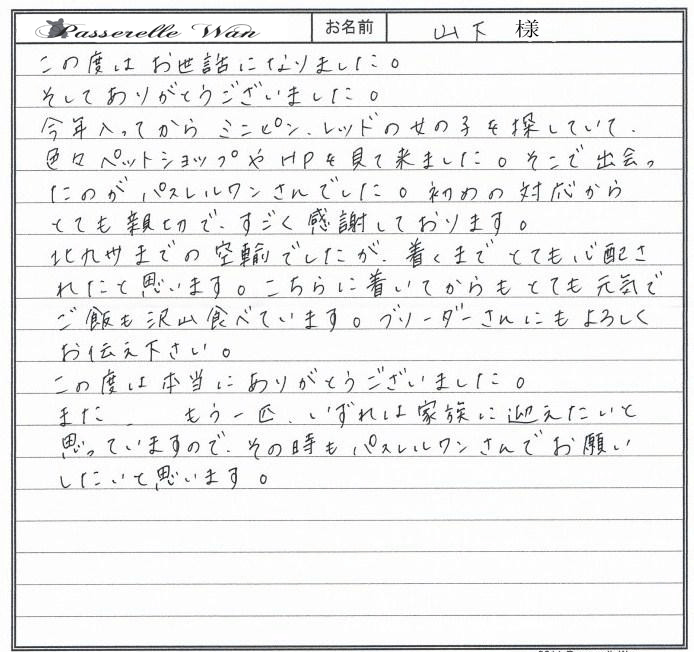 Passerelle Wan お名前 山下 様
この度は お世話になりました。
そしてありがとうございました。
今年入ってから ミニピン、レッドの女の子を探していて、
色々ペットショップやHPを見て来ました。そこで出会っ
たのが パスレルワンさんでした。初めの対応から
とても親切で、すごく感謝しております。
北九州までの空輸でしたが、着くまで とても心配さ
れたと思います。こちらに着いてからも とても元気で
ご飯も沢山食べています。ブリーダーさんにもよろしく
お伝え下さい。
この度は本当にありがとうございました。
また、 もう一匹、いずれは家族に迎えたいと
思っていますので、その時もパスレルワンさんでお願い
したいと思います。